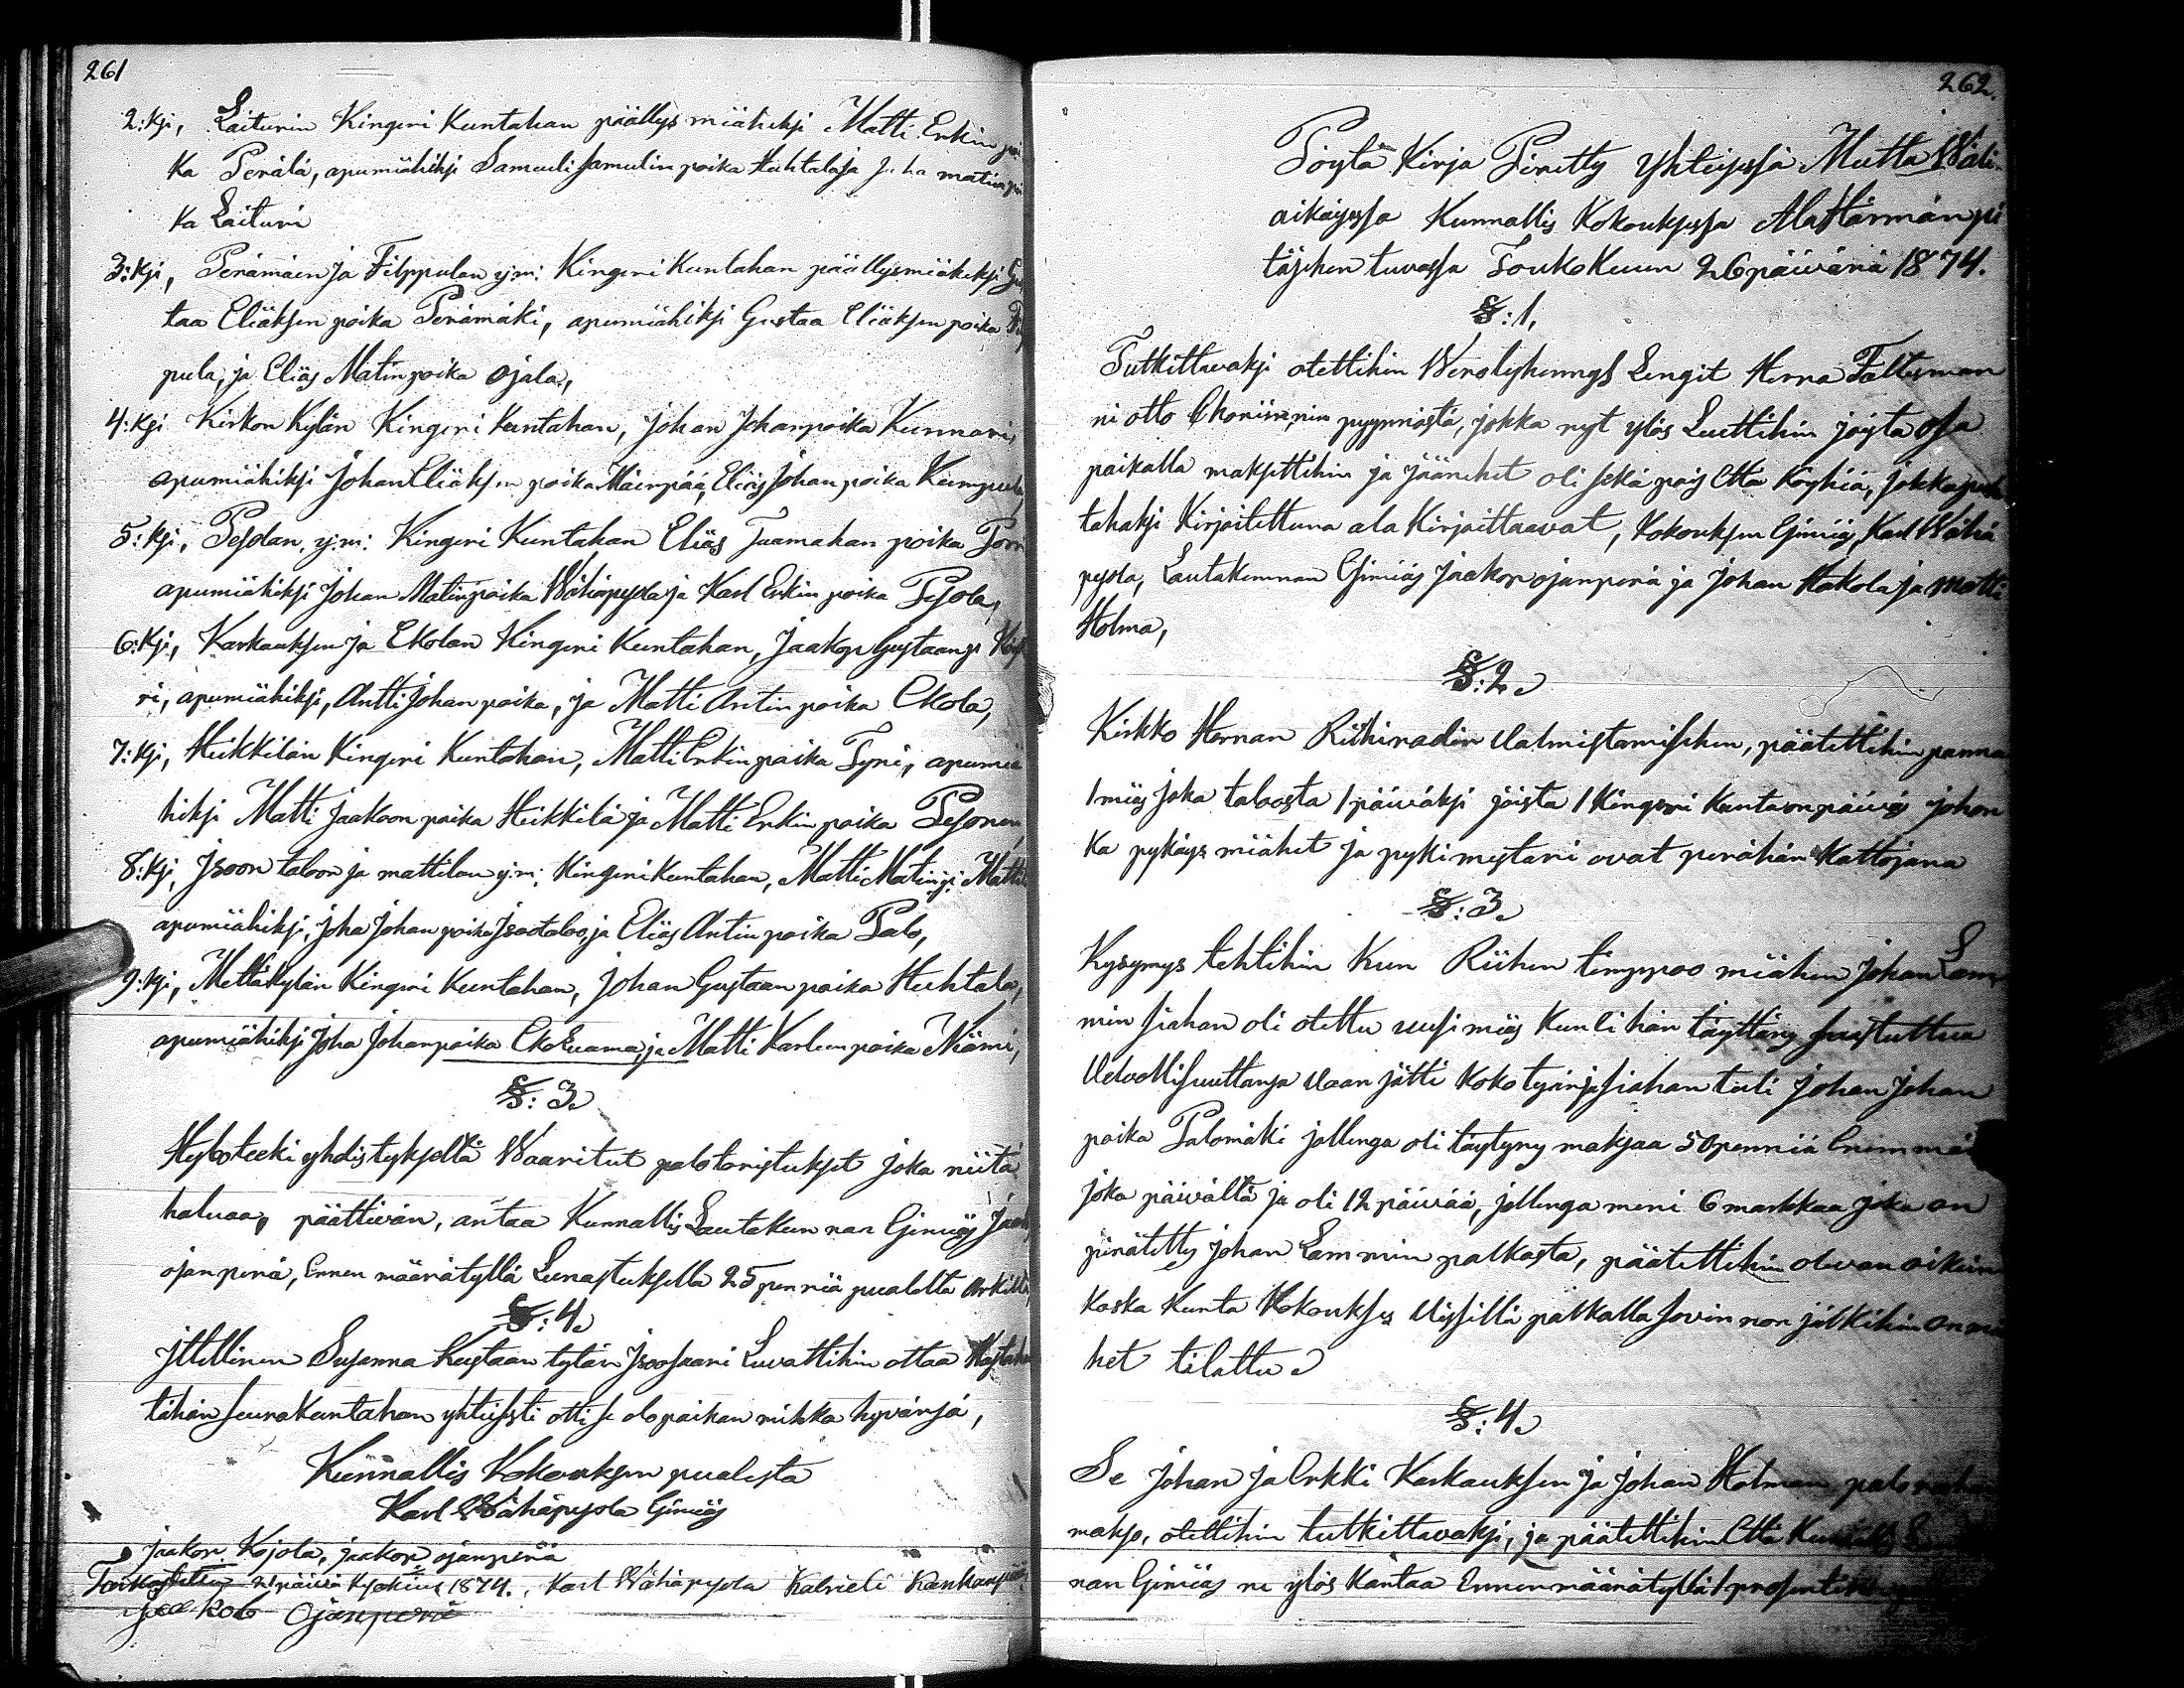 261
2:ksi, Laiturin Kingeri Kuntahan päällys miäheksi Matti Erkin poi
ka Perälä, apumiähiksi Samuuli Samulin poika Huhtala ja Juha matin poi
ka Laituri
3:ksi, Perämäen ja Filppulan y:m: Kingeri Kuntahan päällysmiäheksi Gus
taa Eliäksen poika Perämäki, apumiähiksi Gustaa Eliäksen poika Filp
pula, ja Eliäs Matin poika Ojala,
4:ksi Kirkon Kylän Kingeri Kuntahan, Johan Johanpoika Kunnari,
apumiähiksi Johan Eliäksen poika Mäenpää, Eliäs Johan poika Kumpula,
5:ksi, Pesolan, y:m: Kingeri Kuntahan Eliäs Tuamahan poika
apumiähiksi Johan Matinpoika Wähäpesola ja Karl Erkin poika Pesola,
6:ksi, Karkauksen ja Ekolan Kingeri Kuntahan, Jaakop Gustaan p:
ri, apumiähiksi, Antti Johan poika, ja Matti Antin poika Ekola,
7:ksi, Heikkilän Kingeri Kuntahan, Matti Erkin poika Tyni, apumiä
hiksi Matti Jaakoon poika Heikkilä ja Matti Erkin poika Pesonen
8:ksi, Isoon taloon ja mattilan y:m: Kingeri Kuntahan, Matti Matin p: Mattila
apumiähiksi, Joha Johan poika Isootaloo, ja Eliäs Antin poika Palo,
9:ksi, Mettäkylän Kingeri Kuntahan, Johan Gustaan poika Huhtala,
apumiähiksi Joha Johanpoika Ekoluama, ja Matti Karleen poika Niämi,
§: 3.
Hyboteeki yhdistykseltä Waaritut palotoristukset joka niitä
haluaa, päättivän, antaa Kunnallis Lautakunnan Esimiäs Jaak
ojanperä, Ennen määrätyllä Lunastuksella 25 penniä puolelta Arkilta,
§: 4.
Itellinen Susanna Kustaan tytär Isoosaari Luvattihin ottaa Vastahan
tähän seurakuntahan yhteisesti otti se olopaikan mihkä hyvänsä,
Kunnallis Kokouksen puolesta
Karl Wähäpesola Esimiäs
Jaakop Kojola, Jaakop ojanperä
Tarkastettu 21 päivä Kesäkuus 1874. Karl Wähäpesola Kabrieli Kankaanpää
Jaakob Ojanperä
262.
Pöytä Kirja Piretty Yhteisessä Mutta Wäli
aikaisessa Kunnallis Kokouksessa AlaHärmän pi
täjähen tuvassa Toukokuun 26 päivänä 1874.
§: 1,
Tutkittavaksi otettihin Werolyhennys Lengit Herra Faltusman
ni otto pyynnöstä, jokka nyt ylös Luettihin joista osa
paikalla maksettihin ja jäänehet oli sekä pois Että Köyhiä, jokka puh
tahaksi Kirjoitettuna ala Kirjoittaavat, Kokouksen Esimiäs, Karl Wähä
pesola, Lautakunnan Esimiäs Jaakop ojanperä ja Johan Hakola ja Matti
Holma,
§: 2.
Kirkko Herran Riihiradin Valmistamisehen, päätettihin panna
1 miäs joka taloosta 1 päiväksi joista 1 Kingeri Kunta on päiväs johon
ka pykäys miähet ja pykimestari ovat perähän Kattojana
§: 3.
Kysymys tehtihin Kun Riihen timppoo miähen Johan Lam
min siahan oli otettu uusi miäs Kun ei hän täyttäny suastuttua
Velvollisuuttansa Vaan jätti Koko työnsä siahan tuli Johan Johan
poika Palomäki jollenga oli täytyny maksaa 50 penniä Enemmän
joka päivältä ja oli 12 päivää, jollenga meni 6 markkaa joka on
pirätetty Johan Lammin palkasta, päätettihin olevan oikein
koska Kunta Kokoukses Vissillä palkalla sovinnon jälkihin on miä
het tilattu.
§: 4.
Se Johan ja Erkki Karkauksen ja Johan Holman palo
makso, otettihin tutkittavaksi, ja päätettihin Että
nan Esimiäs ne ylös Kantaa Ennen määrätyllä 1 prosentin